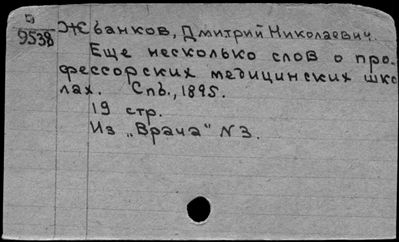 9538
Жбанков, Дмитрий Николаевич.
Еще несколько слов о про-
фессорских медицинских шко-
лах. Спб., 1895.
19 стр.
Из „Врача" N 3.